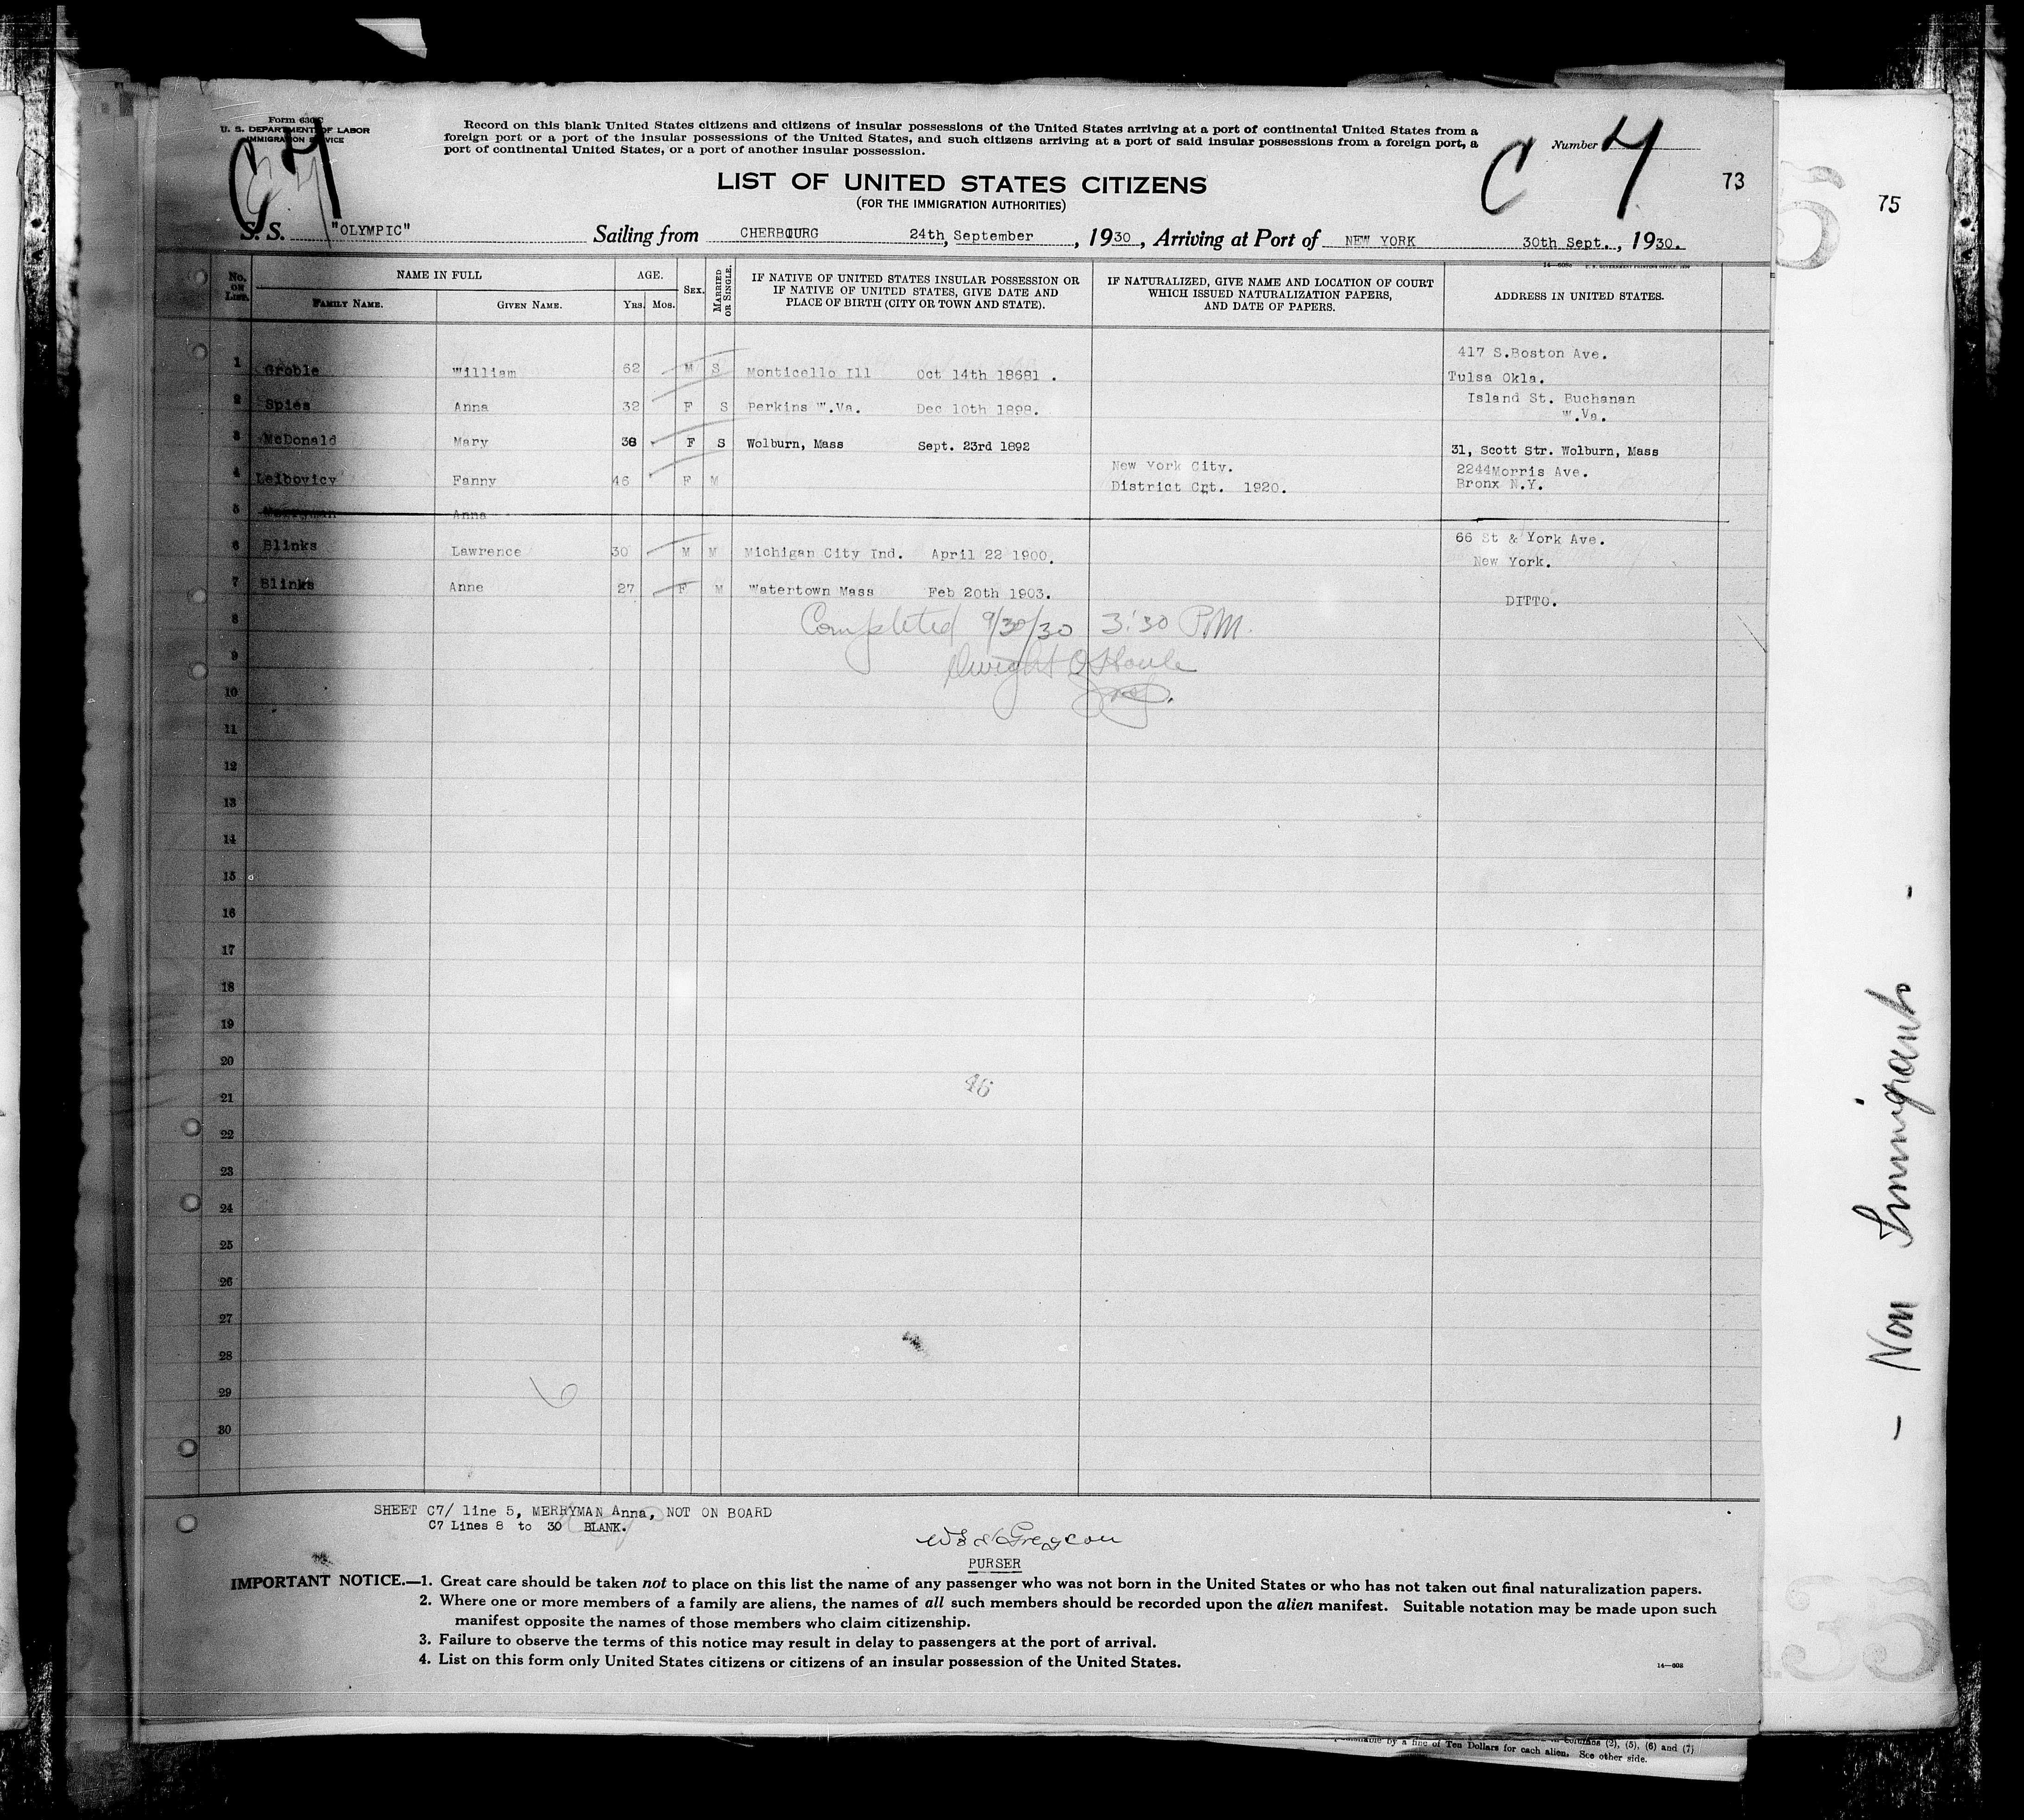 Form 630C
U. S. DEPARTMENT OF LABOR
IMMIGRATION SERVICE
C 7
Record on this blank United States citizens and citizens of insular possessions of the United States arriving at a port of continental United States from a
foreign port or a port of the insular possessions of the United States, and such citizens arriving at a port of said insular possessions from a foreign port, a
port of continental United States, or a port of another insular possession.
Number
C 7
73
75
LIST OF UNITED STATES CITIZENS
(FOR THE IMMIGRATION AUTHORITIES)
S. S. "OLYMPIC" Sailing from CHERBOURG 24th, September, 1930, Arriving at Port of NEW YORK 30th Sept., 1930.
No. ON LIST. NAME IN FULL AGE. SEX. MARRIED OR SINGLE. IF NATIVE OF UNITED STATES INSULAR POSSESSION OR IF NATIVE OF UNITED STATES, GIVE DATE AND PLACE OF BIRTH (CITY OR TOWN AND STATE). IF NATURALIZED, GIVE NAME AND LOCATION OF COURT WHICH ISSUED NATURALIZATION PAPERS, AND DATE OF PAPERS. ADDRESS IN UNITED STATES.
FAMILY NAME. GIVEN NAME. YRS. MOS.
1 Groble William 62 M S Monticello Ill Oct 14th 18681 . 417 S.Boston Ave.
Tulsa Okla.
2 Spies Anna 32 F S Perkins W.Va. Dec 10th 1898. Island St. Buchanan
W.Va.
3 McDonald Mary 38 F S Wolburn, Mass Sept. 23rd 1892 31, Scott Str. Wolburn, Mass
4 Leibovicv Fanny 46 F M New York City.
District Crt. 1920. 2244Morris Ave.
Bronx N.Y.
5 Merryman Anna
6 Blinks Lawrence 30 M M Michigan City Ind. April 22 1900. 66 St & York Ave.
New York.
7 Blinks Anne 27 F M Watertown Mass Feb 20th 1903. DITTO.
8 Completed 9/30/30 3:30 P.M.
9 Dwight
10
11
12
13
14
15
16
17
18
19
20
46
21
22
23
24
25
26
27
28
29
6
30
SHEET C7/ line 5, MERRYMAN Anna, NOT ON BOARD
C7 Lines 8 to 30 BLANK.
PURSER
IMPORTANT NOTICE.—1. Great care should be taken not to place on this list the name of any passenger who was not born in the United States or who has not taken out final naturalization papers.
2. Where one or more members of a family are aliens, the names of all such members should be recorded upon the alien manifest. Suitable notation may be made upon such
manifest opposite the names of those members who claim citizenship.
3. Failure to observe the terms of this notice may result in delay to passengers at the port of arrival.
4. List on this form only United States citizens or citizens of an insular possession of the United States.
14—608
- Non Immigrants -
columns (2), (5), (6) and (7)
by a fine of Ten Dollars for each alien. See other side.